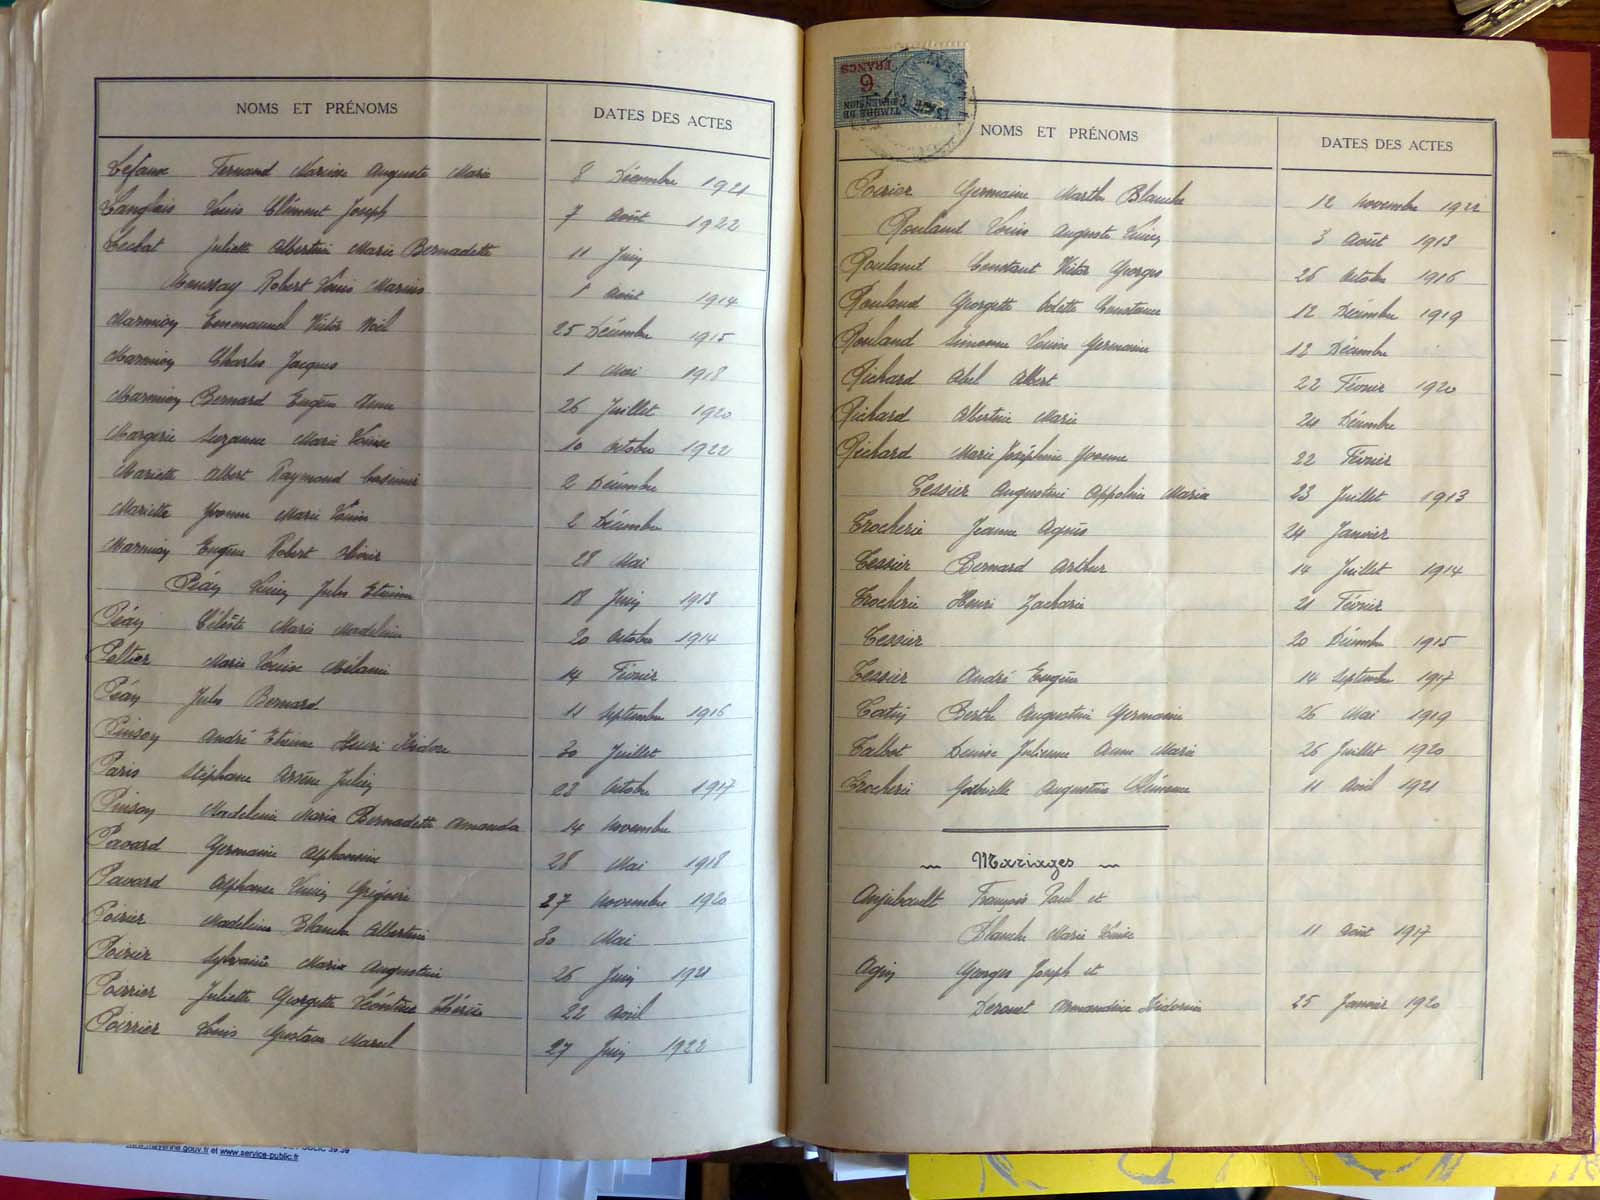 NOMS ET PRÉNOMS DATES DES ACTES
Lefaux Fernand Marius Auguste Marie 8 Décembre 1921
Langlais Louis Clément Joseph 7 Août 1922
Lechat Juliette Albertine Marie Bernadette 11 Juin
Moussay Robert Louis Marius 1 Août 1914
Marmion Emmanuel Victor Noël 25 Décembre 1915
Marmion Charles Jacques 1 Mai 1918
Marmion Bernard Eugène 26 Juillet 1920
Margerie Suzanne Marie Louise 10 Octobre 1922
Mariette Albert Raymond Casimir 2 Décembre
Mariette Yvonne Marie Louise 2 Décembre
Marmion Eugène Robert 28 Mai
Péan Lucien Jules Etienne 18 Juin 1913
Péan Céleste Marie Madeleine 20 Octobre 1914
Peltier Marie Louise Mélanie 14 Février
Péan Jules Bernard 11 Septembre 1916
Pinson André Etienne Henri Isidore 30 Juillet
Paris Stéphane Arsène Julien 23 Octobre 1917
Pinson Madeleine Marie Bernadette Amanda 14 Novembre
Pavard Germaine Alphonsine 28 Mai 1918
Pavard Alphonse Lucien Grégoire 27 Novembre 1920
Poirier Madeleine Blanche Albertine 30 Mai
Poirier Sylvaine Marie Augustine 26 Juin 1921
Poirrier Juliette Georgette Léontine Thérèse 22 Avril
Poirrier Louis Gustave Marcel 27 Juin 1922
6 FRANCS
TIMBRE DE DIMENSION
NOMS ET PRÉNOMS DATES DES ACTES
Poirier Germaine Marthe Blanche 12 Novembre 1922
Rouland Louis Auguste Lucien 3 Août 1913
Rouland Constant Victor Georges 26 Octobre 1916
Rouland Georgette Odette Constance 12 Décembre 1919
Rouland Simonne Louise Germaine 12 Décembre
Richard Abel Albert 22 Février 1920
Richard Albertine Marie 24 Décembre
Richard Marie Joséphine Yvonne 22 Février
Tessier Augustine Appoline Maria 23 Juillet 1913
Trocherie Jeanne Agnès 24 Janvier
Tessier Bernard Arthur 14 Juillet 1914
Trocherie Henri Zacharie 21 Février
Tessier 20 Décembre 1915
Tessier André Eugène 14 Septembre 1917
Tatin Berthe Augustine Germaine 26 Mai 1919
Talbot Denise Julienne Anne Marie 26 Juillet 1920
Trocherie Gabrielle Augustine Clémence 11 Avril 1921
Mariages
Anjubault François Paul et
Blanche Marie Louise 11 Août 1917
Agin Georges Joseph et
Derouet Armandine Isidorine 25 Janvier 1920
www.mayenne.gouv.fr et www.service-public.fr